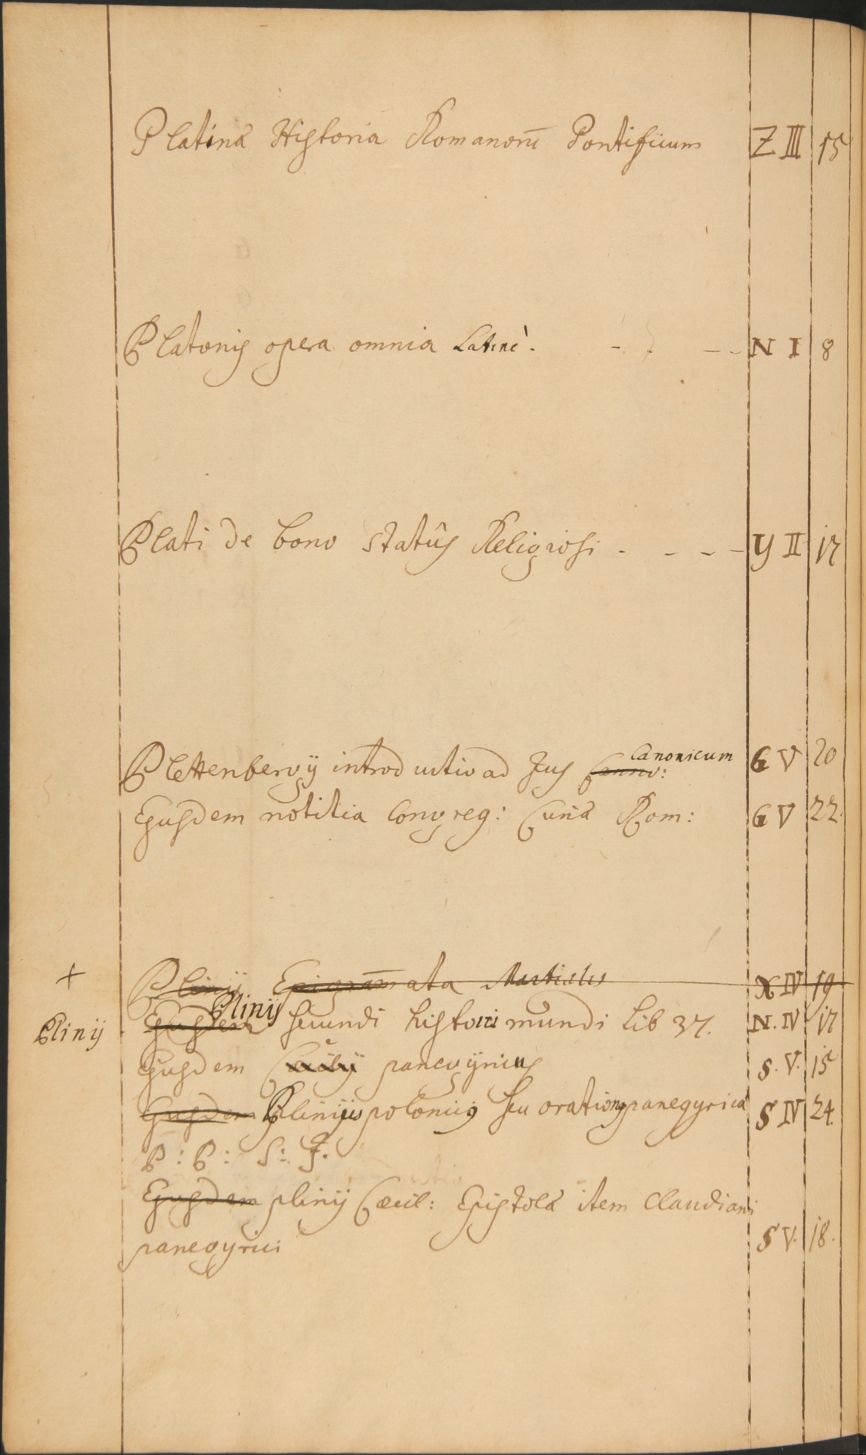 Platinæ Historia Romanorū Pontificum Z III 15
Platonis opera omnia Latinè. N I 8
Plati de bono statûs Religiosi - - - - Y II 17
Canonicum
Plettenbergÿ introductio ad Jus Canno: G V 20
Ejusdem notitia Congreg: Curiæ Rom: G V 22.
+ Plinÿ Epigram̄ata Martialis X IV 19
Plinÿ
Plinÿ Ejusdem secundi historiæ mundi Lib 37. N. IV 17
Ejusdem panegyricus S. V. 15
Ejusdem Plinius polonus seu orationes panegyricæ S IV 24
P: P: S: J.
Ejusdem plinÿ Cæcil: Epistolæ item Claudiani
panegyrici S V. 18.